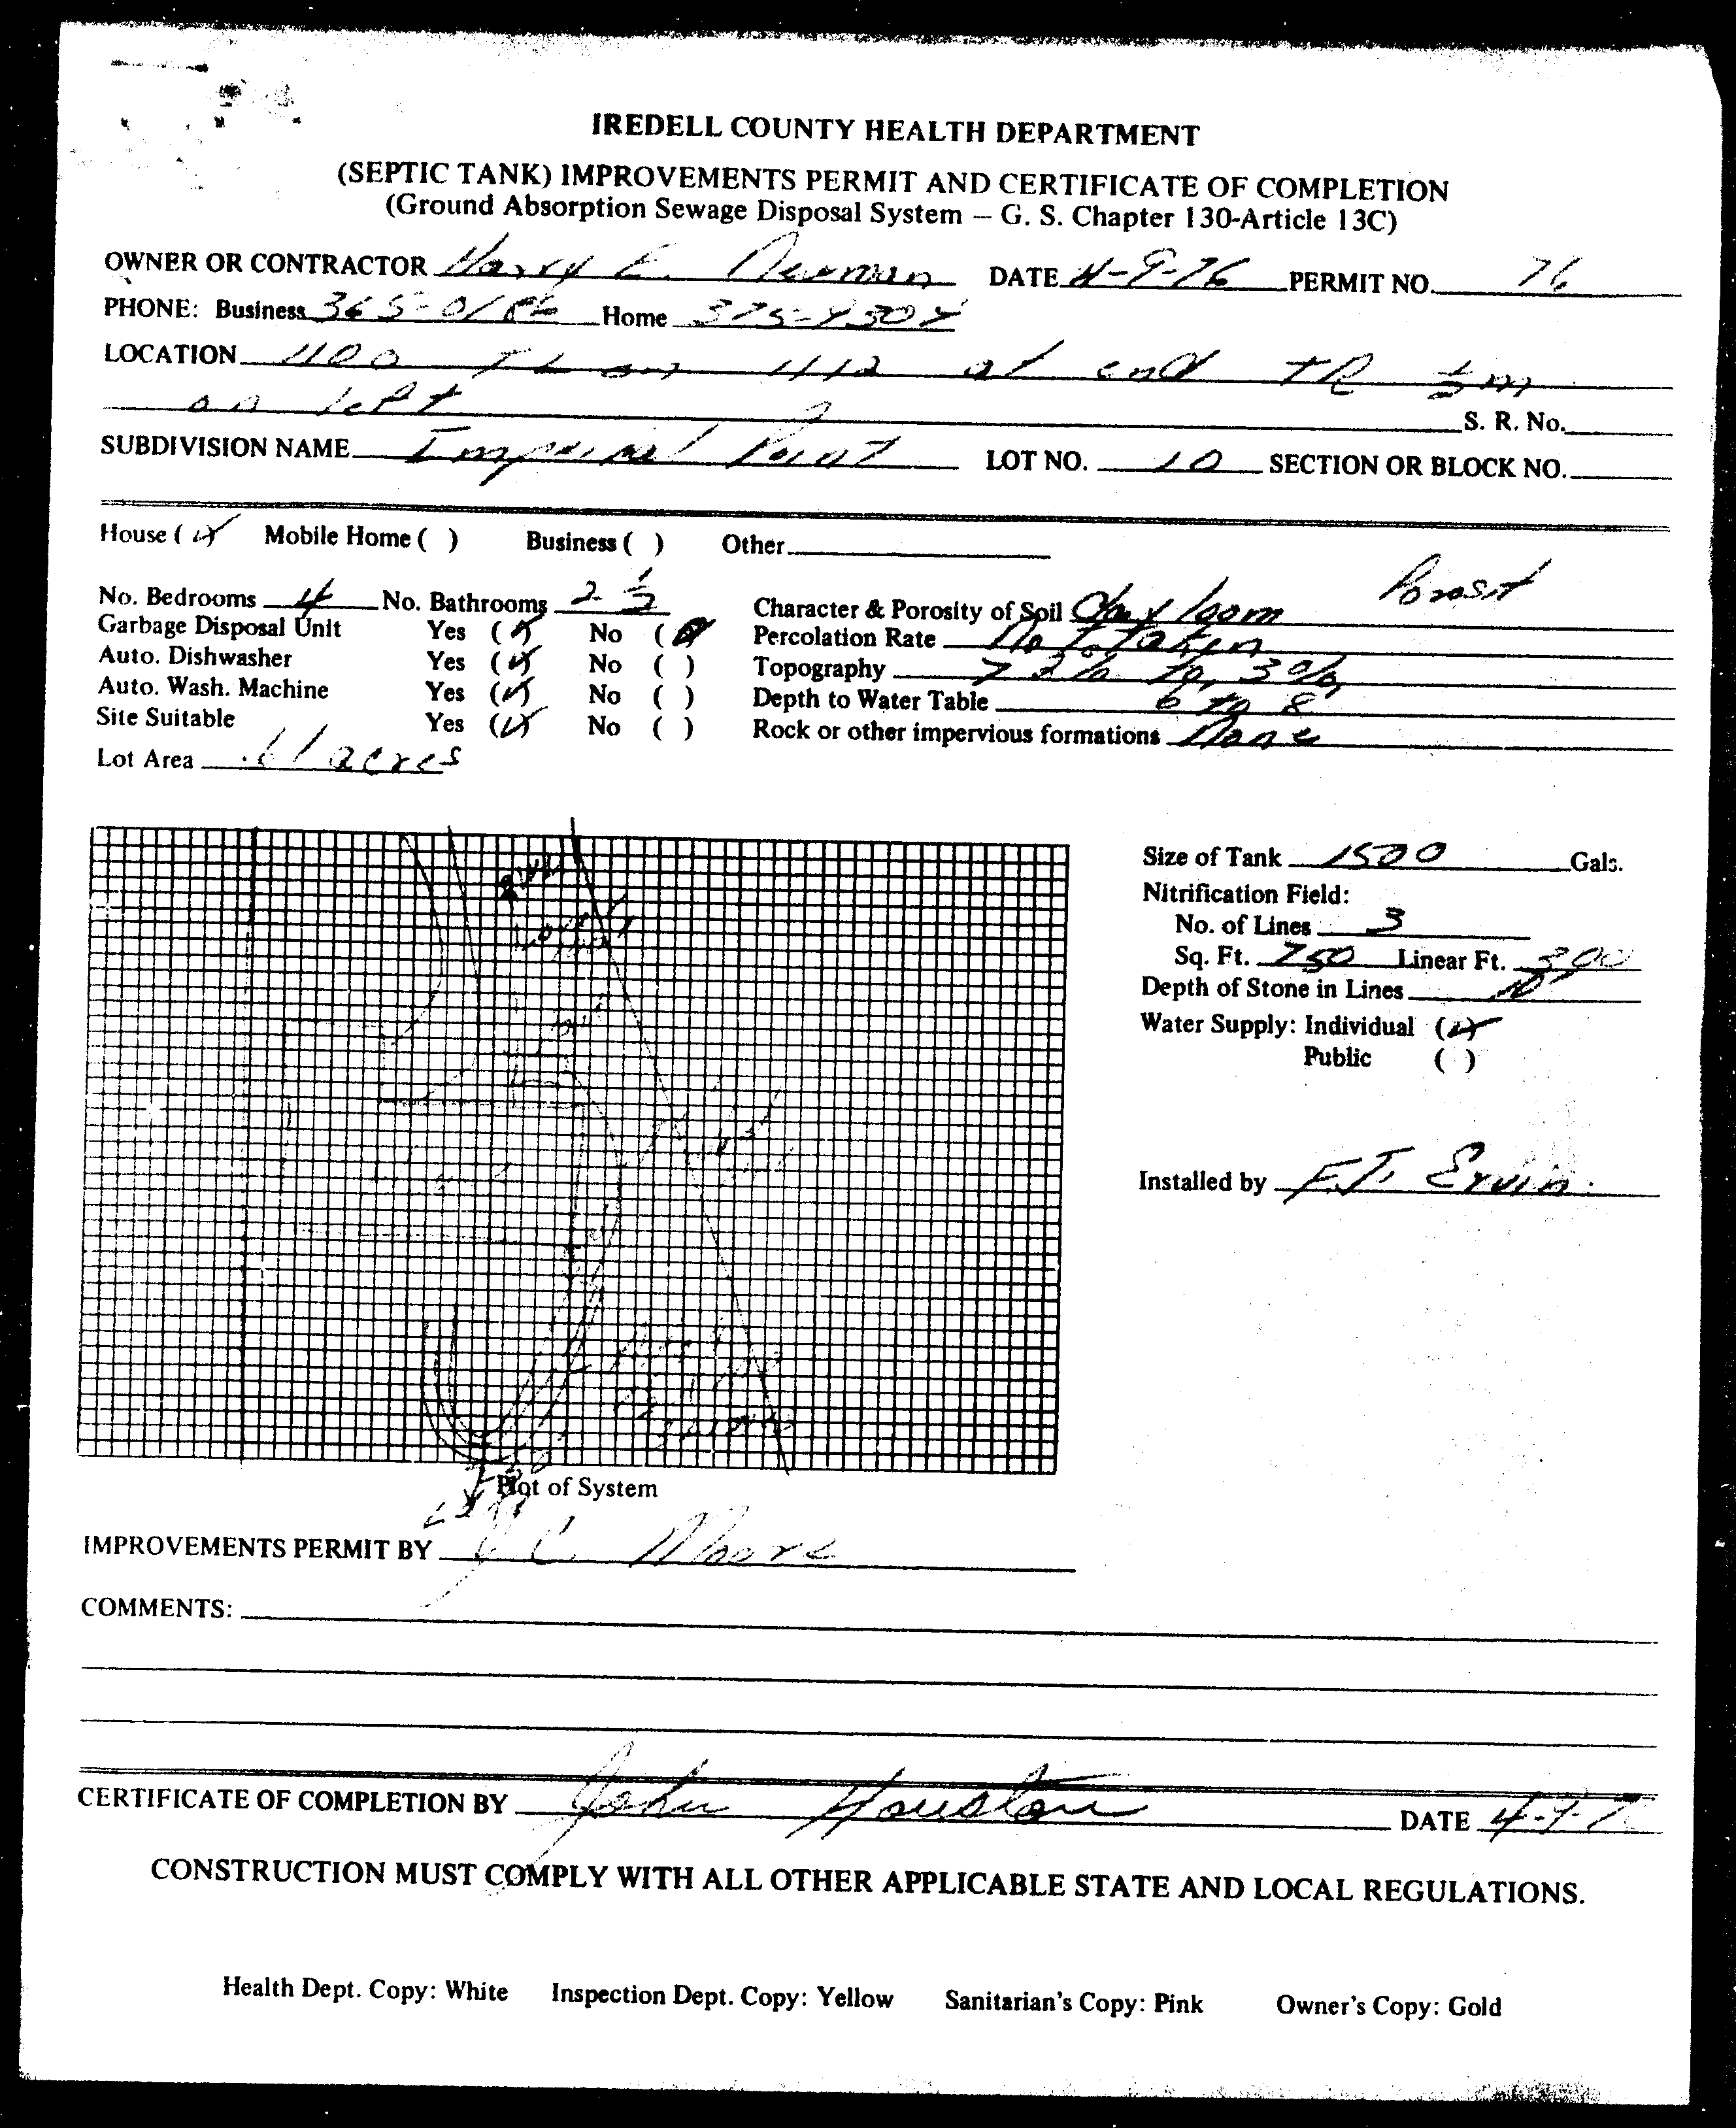 IREDELL COUNTY HEALTH DEPARTMENT
(SEPTIC TANK) IMPROVEMENTS PERMIT AND CERTIFICATE OF COMPLETION
(Ground Absorption Sewage Disposal System — G. S. Chapter 130-Article 13C)
OWNER OR CONTRACTOR Harry E. DATE 4-9-76 PERMIT NO. 76
PHONE: Business 365-01 Home 375-
LOCATION 1100 TL on at end TR ½ m
on left S. R. No.
SUBDIVISION NAME Imperial Point LOT NO. 10 SECTION OR BLOCK NO.
House (✓) Mobile Home ( ) Business ( ) Other
No. Bedrooms 4 No. Bathrooms 2 ½ Character & Porosity of Soil Clay loam
Garbage Disposal Unit Yes (✓) No ( ) Percolation Rate Not taken
Auto. Dishwasher Yes (✓) No ( ) Topography to 3%
Auto. Wash. Machine Yes (✓) No ( ) Depth to Water Table 6 to 8
Site Suitable Yes (✓) No ( ) Rock or other impervious formations None
Lot Area .61 acres
Size of Tank 1500 Gals.
Nitrification Field:
No. of Lines 3
Sq. Ft. 750 Linear Ft. 300
Depth of Stone in Lines
Water Supply: Individual (✓)
Public ( )
Installed by F.T. Ervin
Plot of System
IMPROVEMENTS PERMIT BY J C. Moore
COMMENTS:
CERTIFICATE OF COMPLETION BY John Houston DATE
CONSTRUCTION MUST COMPLY WITH ALL OTHER APPLICABLE STATE AND LOCAL REGULATIONS.
Health Dept. Copy: White Inspection Dept. Copy: Yellow Sanitarian's Copy: Pink Owner's Copy: Gold